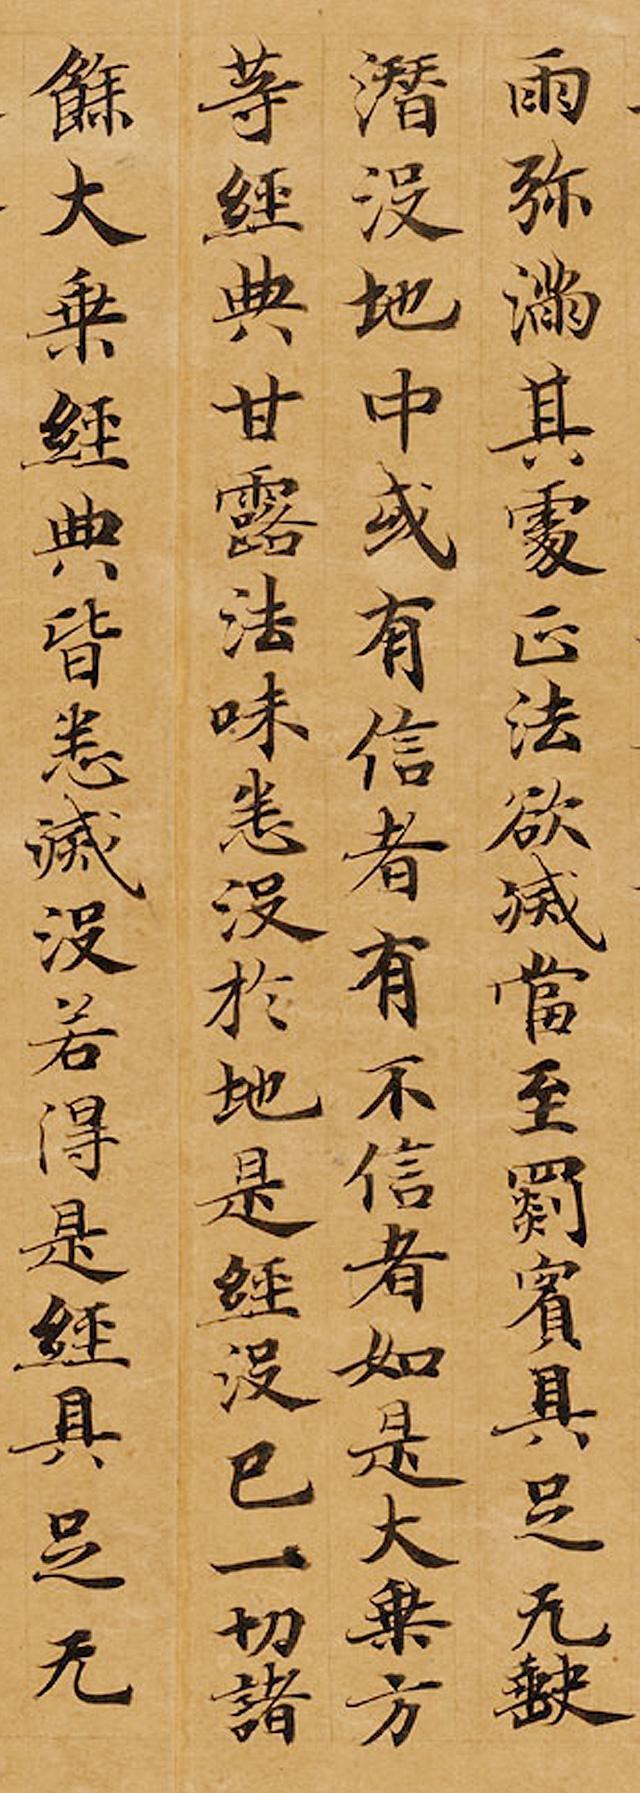 雨弥滿其處正法欲滅當至罽賓具足无缺
潛沒地中或有信者有不信者如是大乘方
等經典甘露法味悉沒於地是經沒已一切諸
餘大乘經典皆悉滅沒若得是經具足无